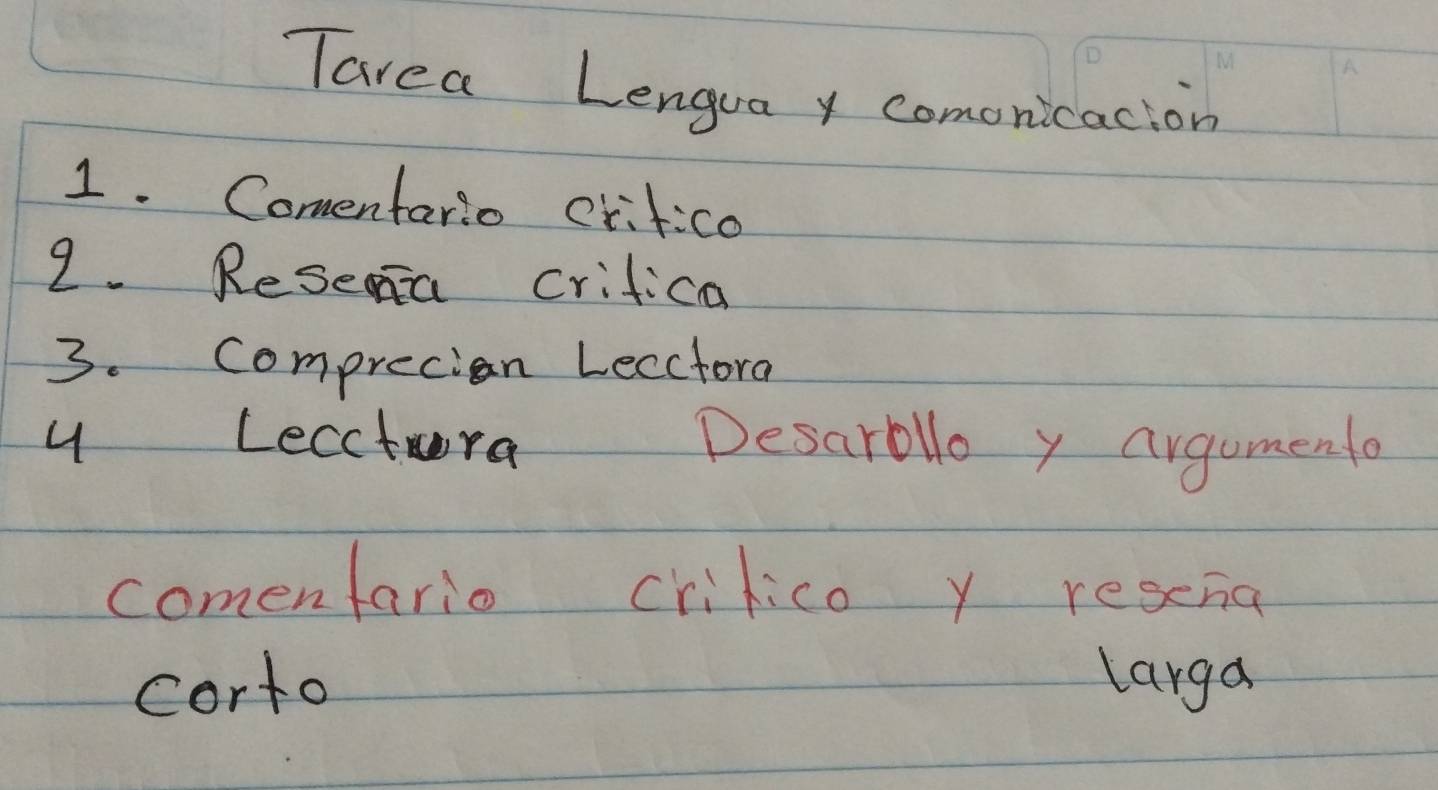 D M A
Tarea Lengua y comonicación
1. Comentario critico
2. Reseña critica
3. Comprecion Lecctora
4 Lecctura Desarollo y argumento
comentario critico y reseña
corto larga